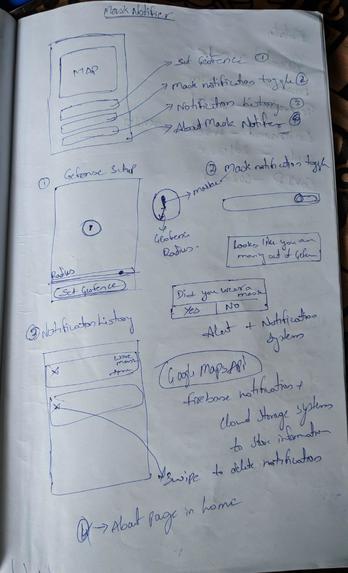 Mask Notifier
MAP
Set Geofence ①
Mask notification toggle ②
Notification History ③
About Mask Notifier ④
① Geofense Setup
marker
Geofence
Radius.
Radius
Set Geofence
② Mask notification toggle
Looks like you are
Did you wear a
mask
Yes No
Alert + Notification
Systems
③ Notification History
X
X
Google Maps Api
firebase notification +
cloud storage systems
to store information
Swipe to delete notification
→ About page in home